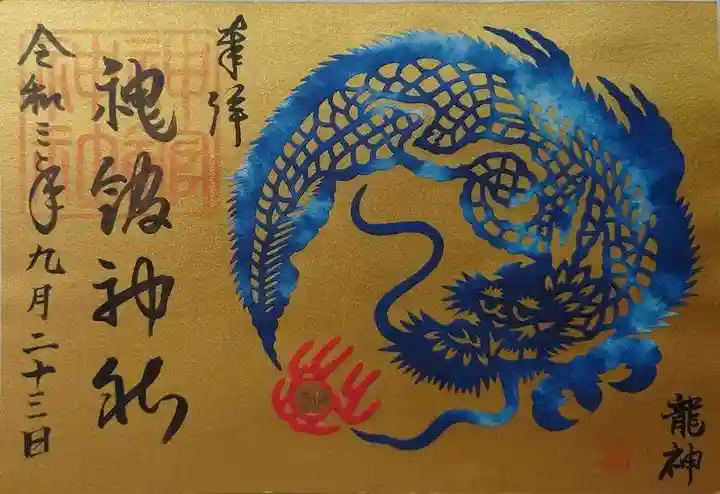 奉拝
神社
令和三年九月二十三日
龍神